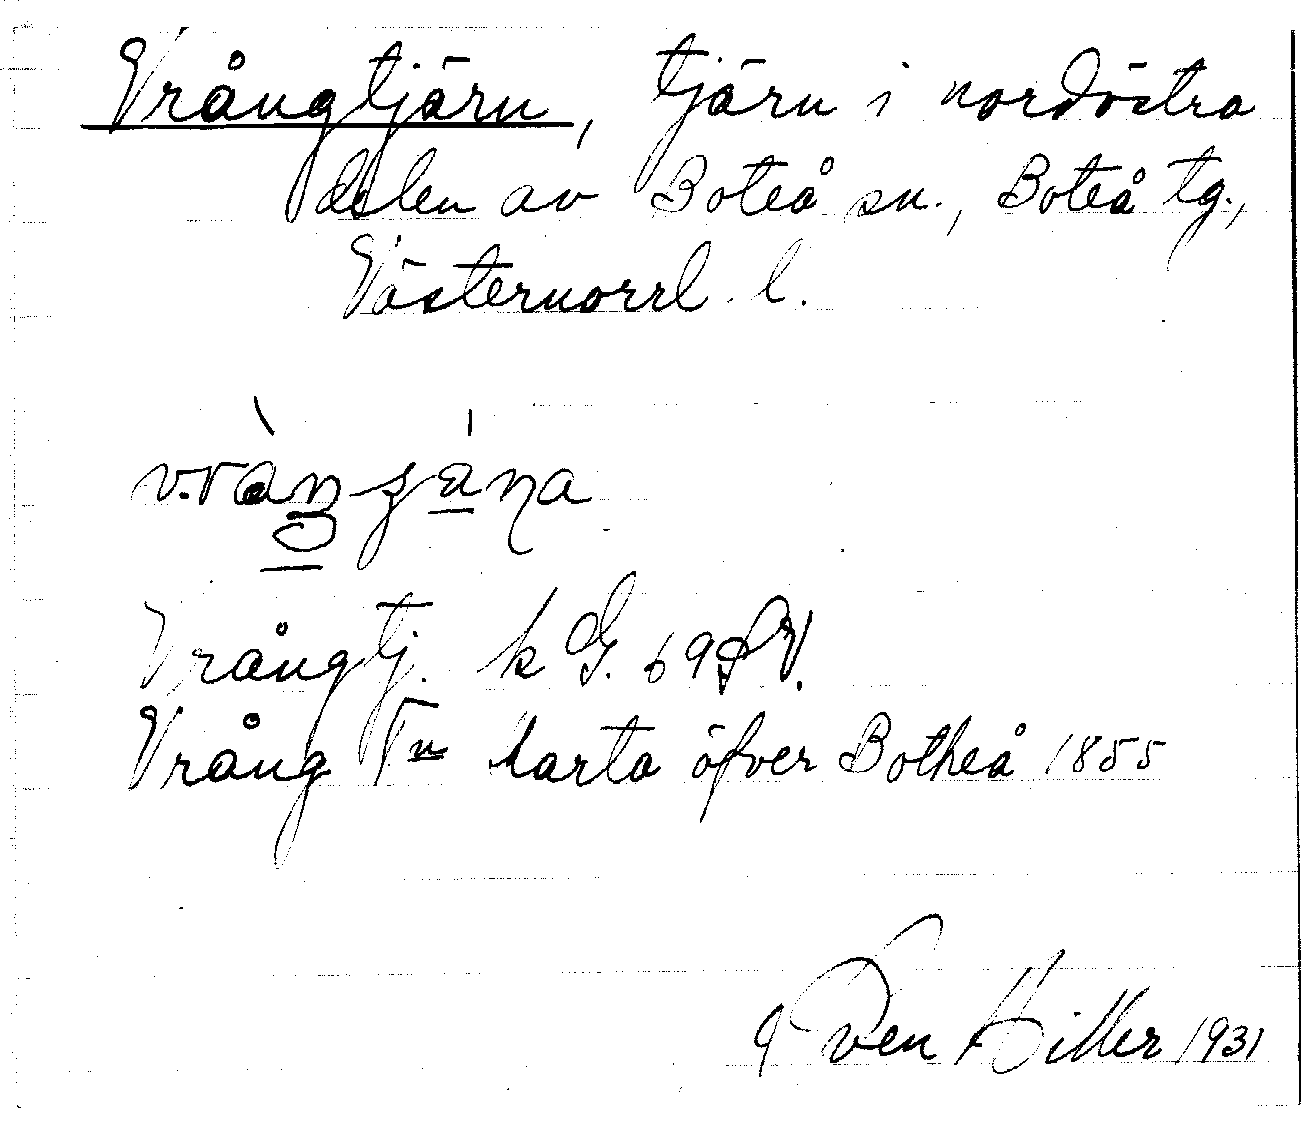 Vrångtjärn, tjärn i nordöstra
delen av Boteå sn., Boteå tg.,
Västernorrl. l.
Vrångtj. k G. 69 SV.
Vrång Tn karta öfver Botheå 1855
Sven Hiller 1931